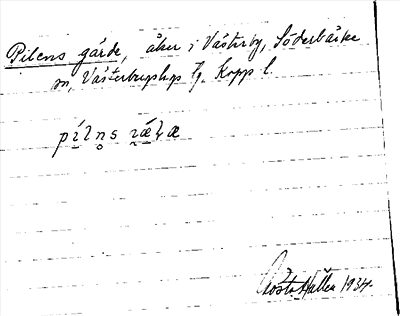 Pilens gärde, åker i Västerby, Söderbärke
sn, Västerbergslags fg. Kopp l.
pílns ǥǽḷæ
Gösta Hallén 1934.